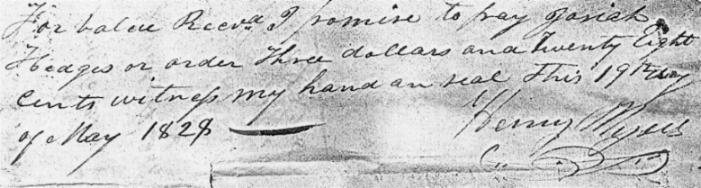 For value Recvd I promise to pay Josiah
Hedges or order Three dollars and Twenty Eight
cents witness my hand an seal This 19th day
of May 1828
Henry Myers